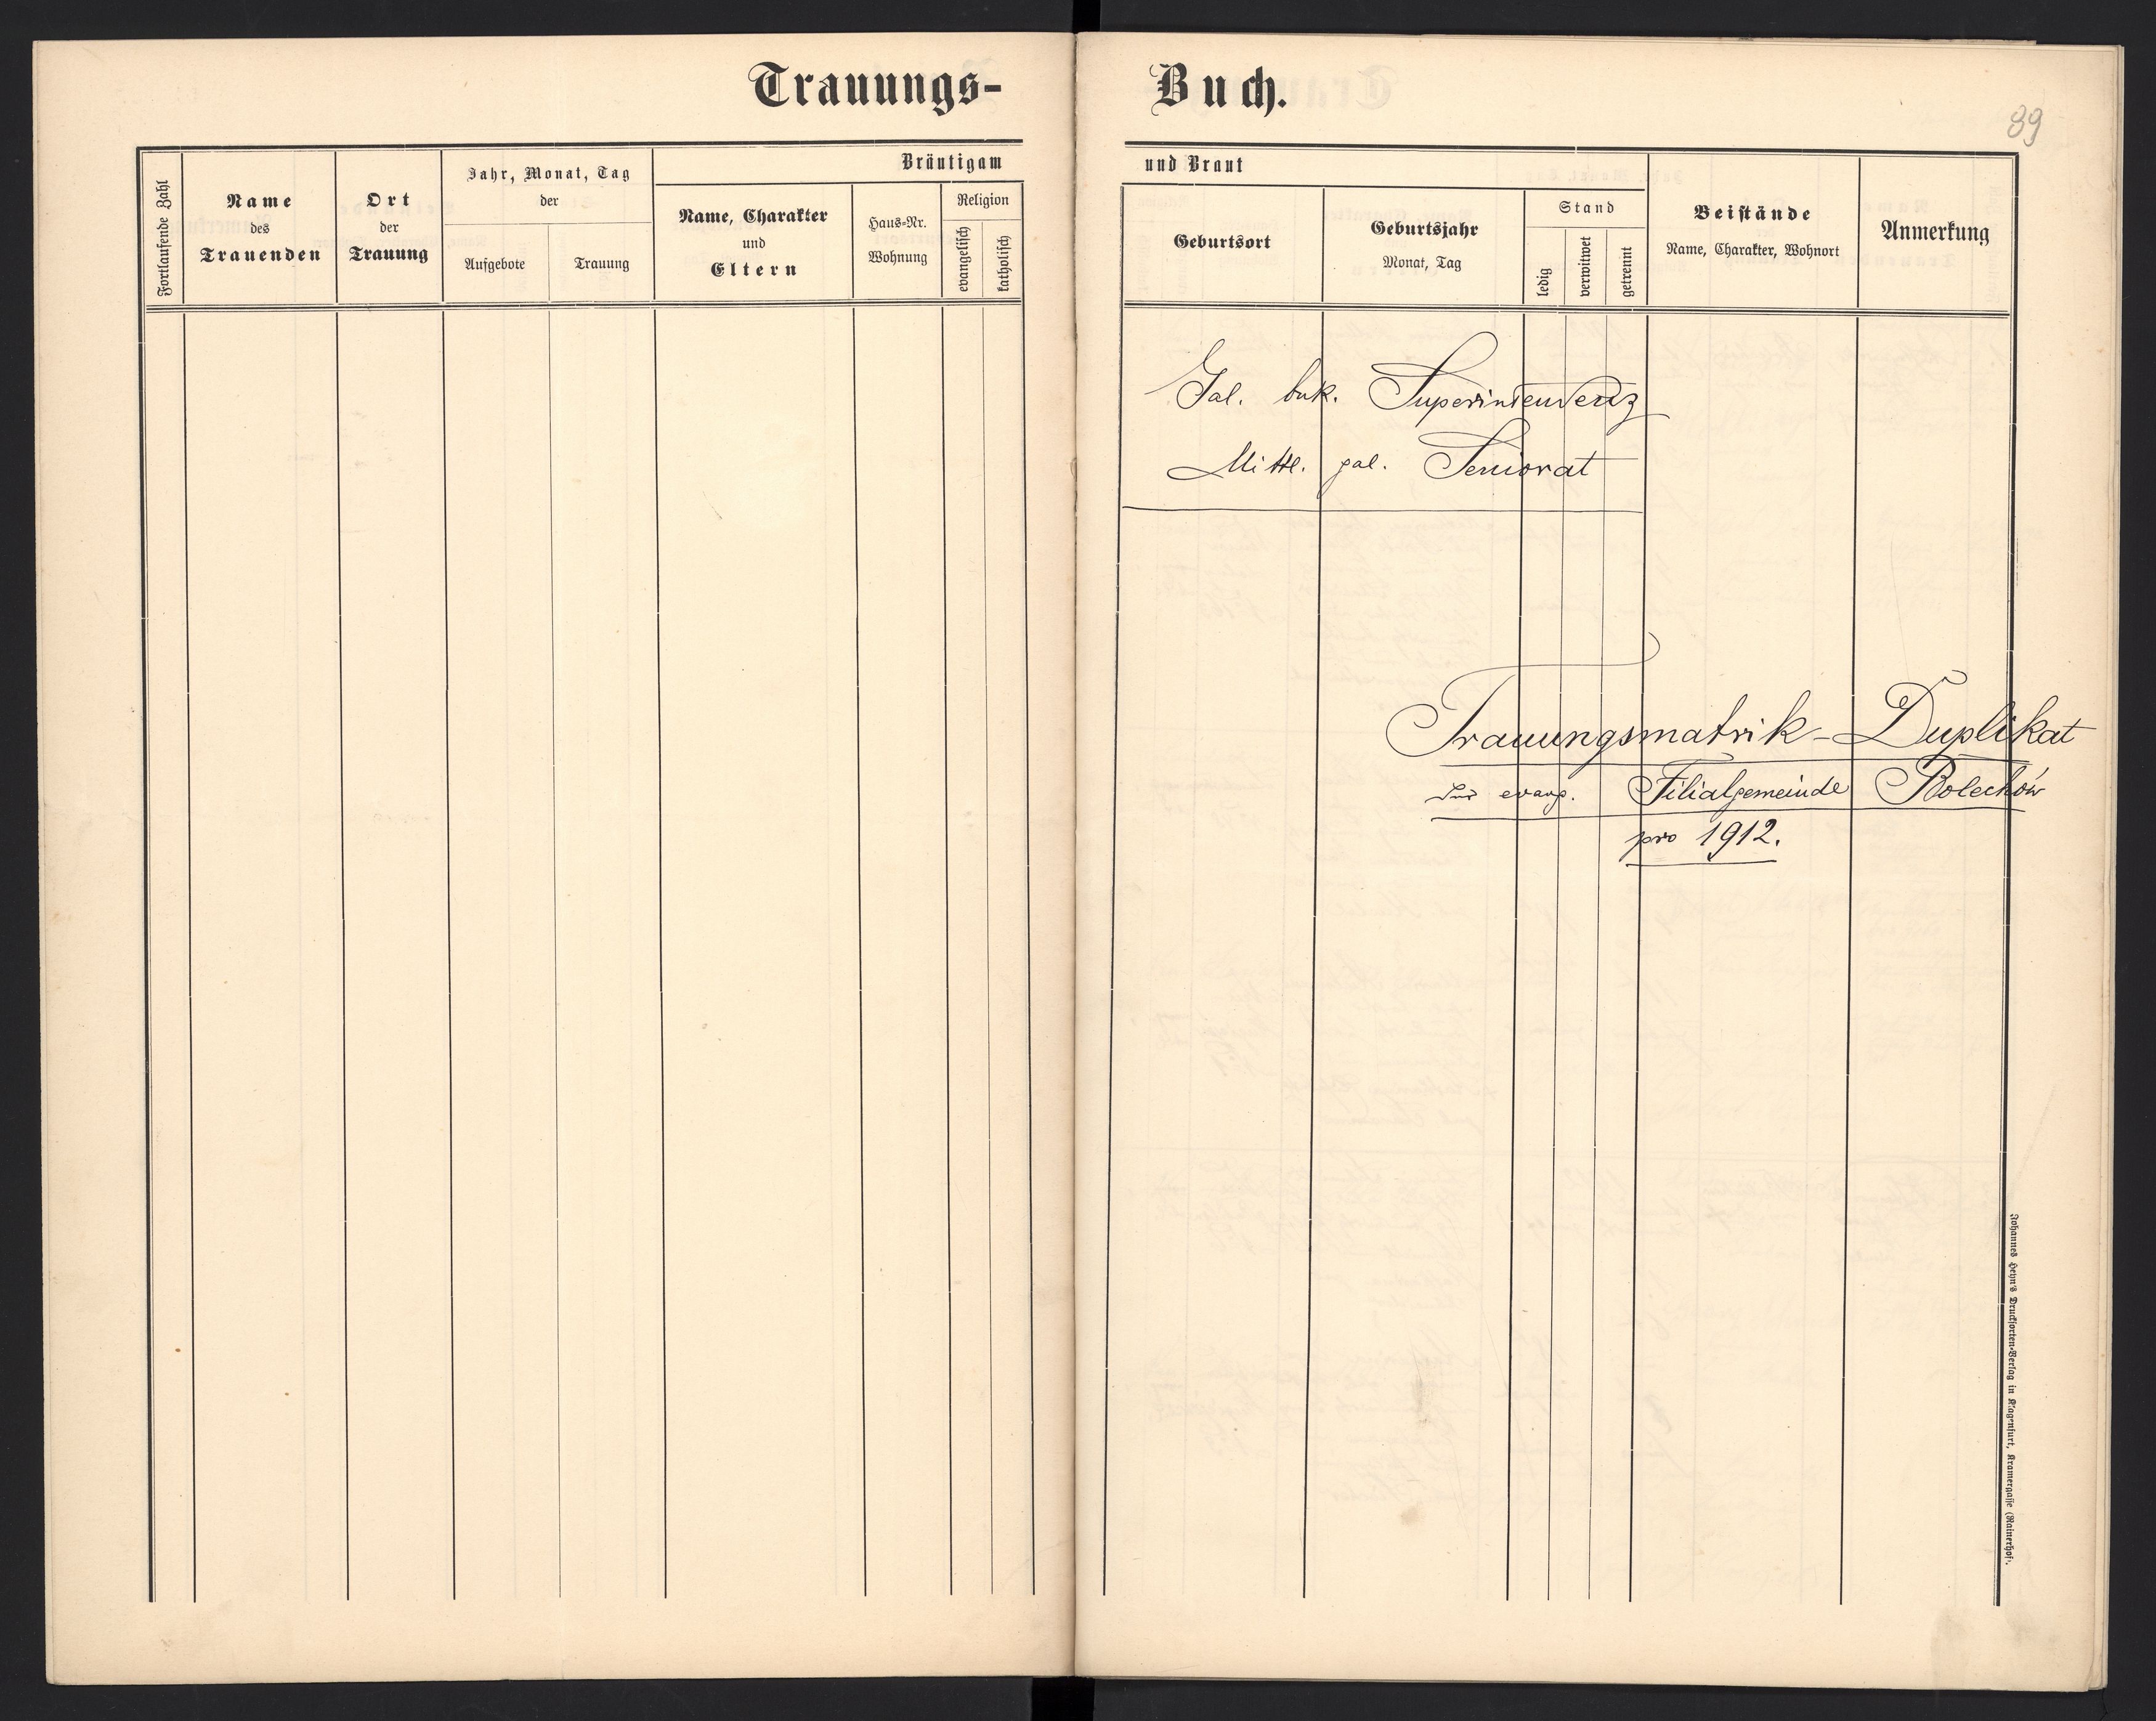 Trauungs-
Fortlaufende Zahl
Name
des
Trauenden
Ort
der
Trauung
Jahr, Monat, Tag
der
Aufgebote
Trauung
Bräutigam
Name, Charakter
und
Eltern
Haus-Nr.
Wohnung
Religion
evangelisch
katholisch
Buch.
39
und Braut
Geburtsort
Geburtsjahr
Monat, Tag
Stand
ledig
verwitwet
getrennt
Beistände
Name, Charakter, Wohnort
Anmerkung
Gal. buk. Superintendenz
Mittl. gal. Seniorat
Trauungsmatrik-Duplikat
der evang. Filialgemeinde Bolechów
pro 1912.
Johannes Heyn's Drucksorten-Verlag in Klagenfurt, Kramergasse (Rainerhof).